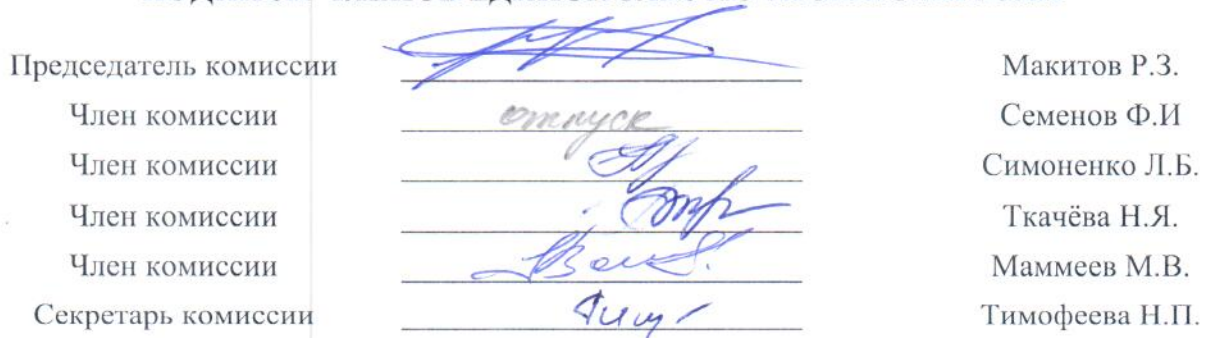 Председатель комиссии Макитов Р.З.
Член комиссии отпуск Семенов Ф.И
Член комиссии Симоненко Л.Б.
Член комиссии Ткачёва Н.Я.
Член комиссии Маммеев М.В.
Секретарь комиссии Тимофеева Н.П.